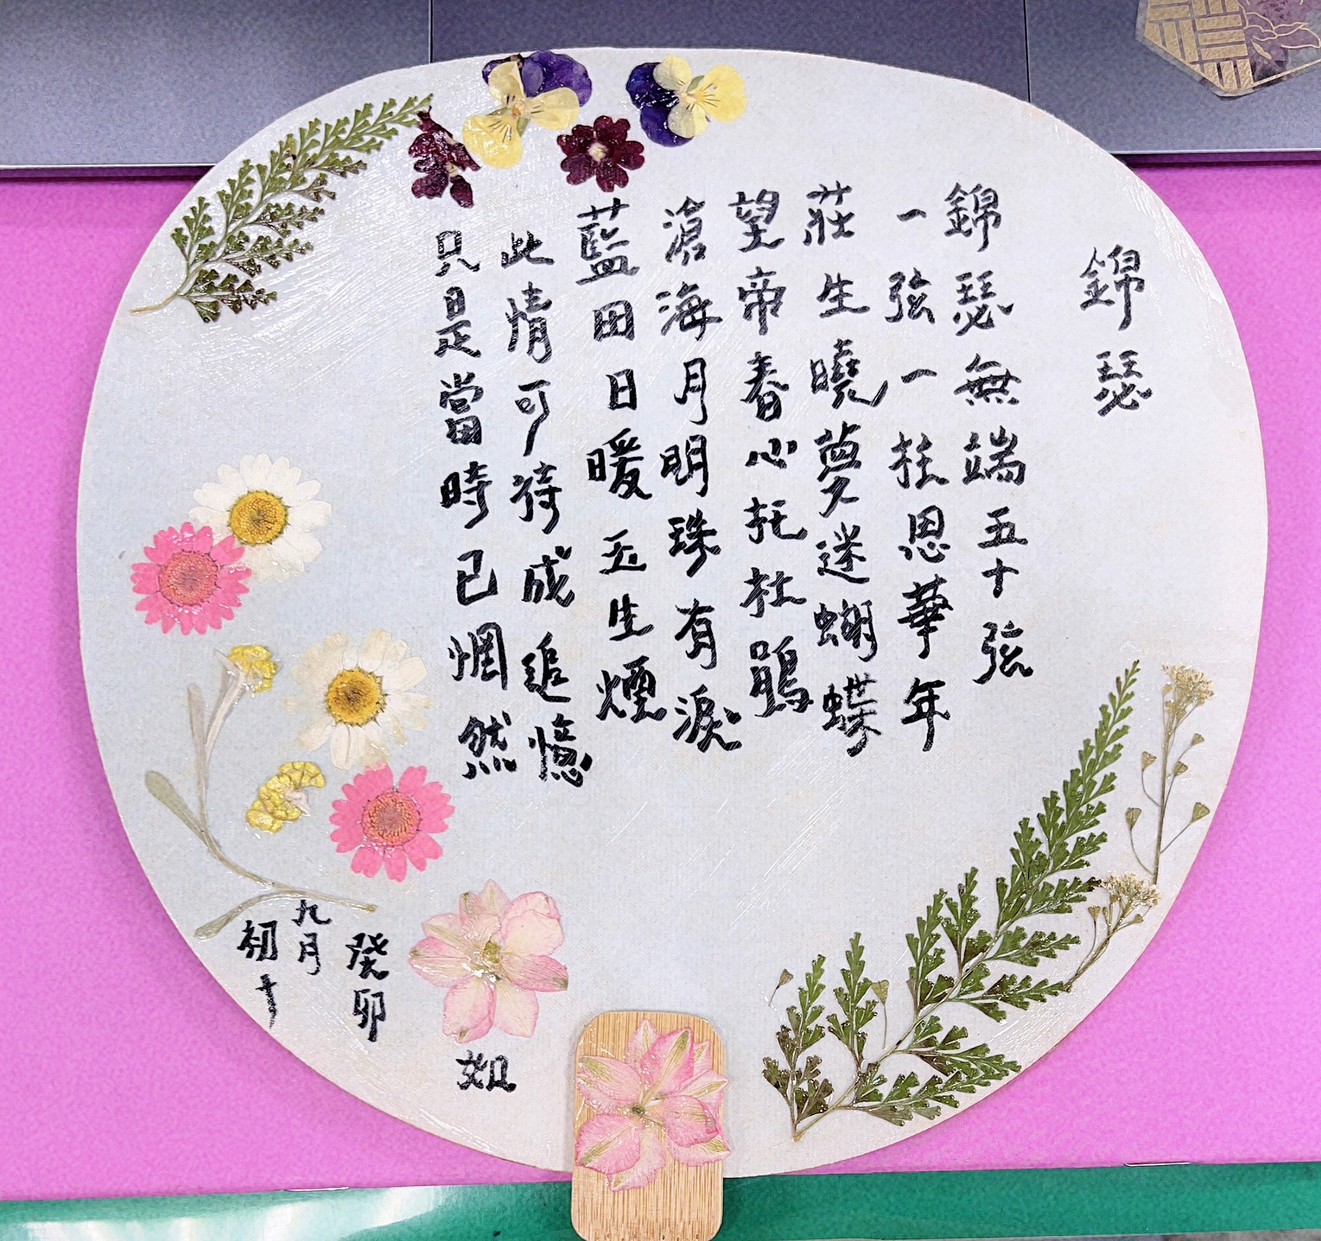 錦瑟
錦瑟無端五十弦
一弦一柱恩華年
莊生曉夢迷蝴蝶
望帝春心托杜鵑
滄海月明珠有淚
藍田日暖玉生煙
此情可待成追憶
只是當時已惘然
癸卯
九月
初十